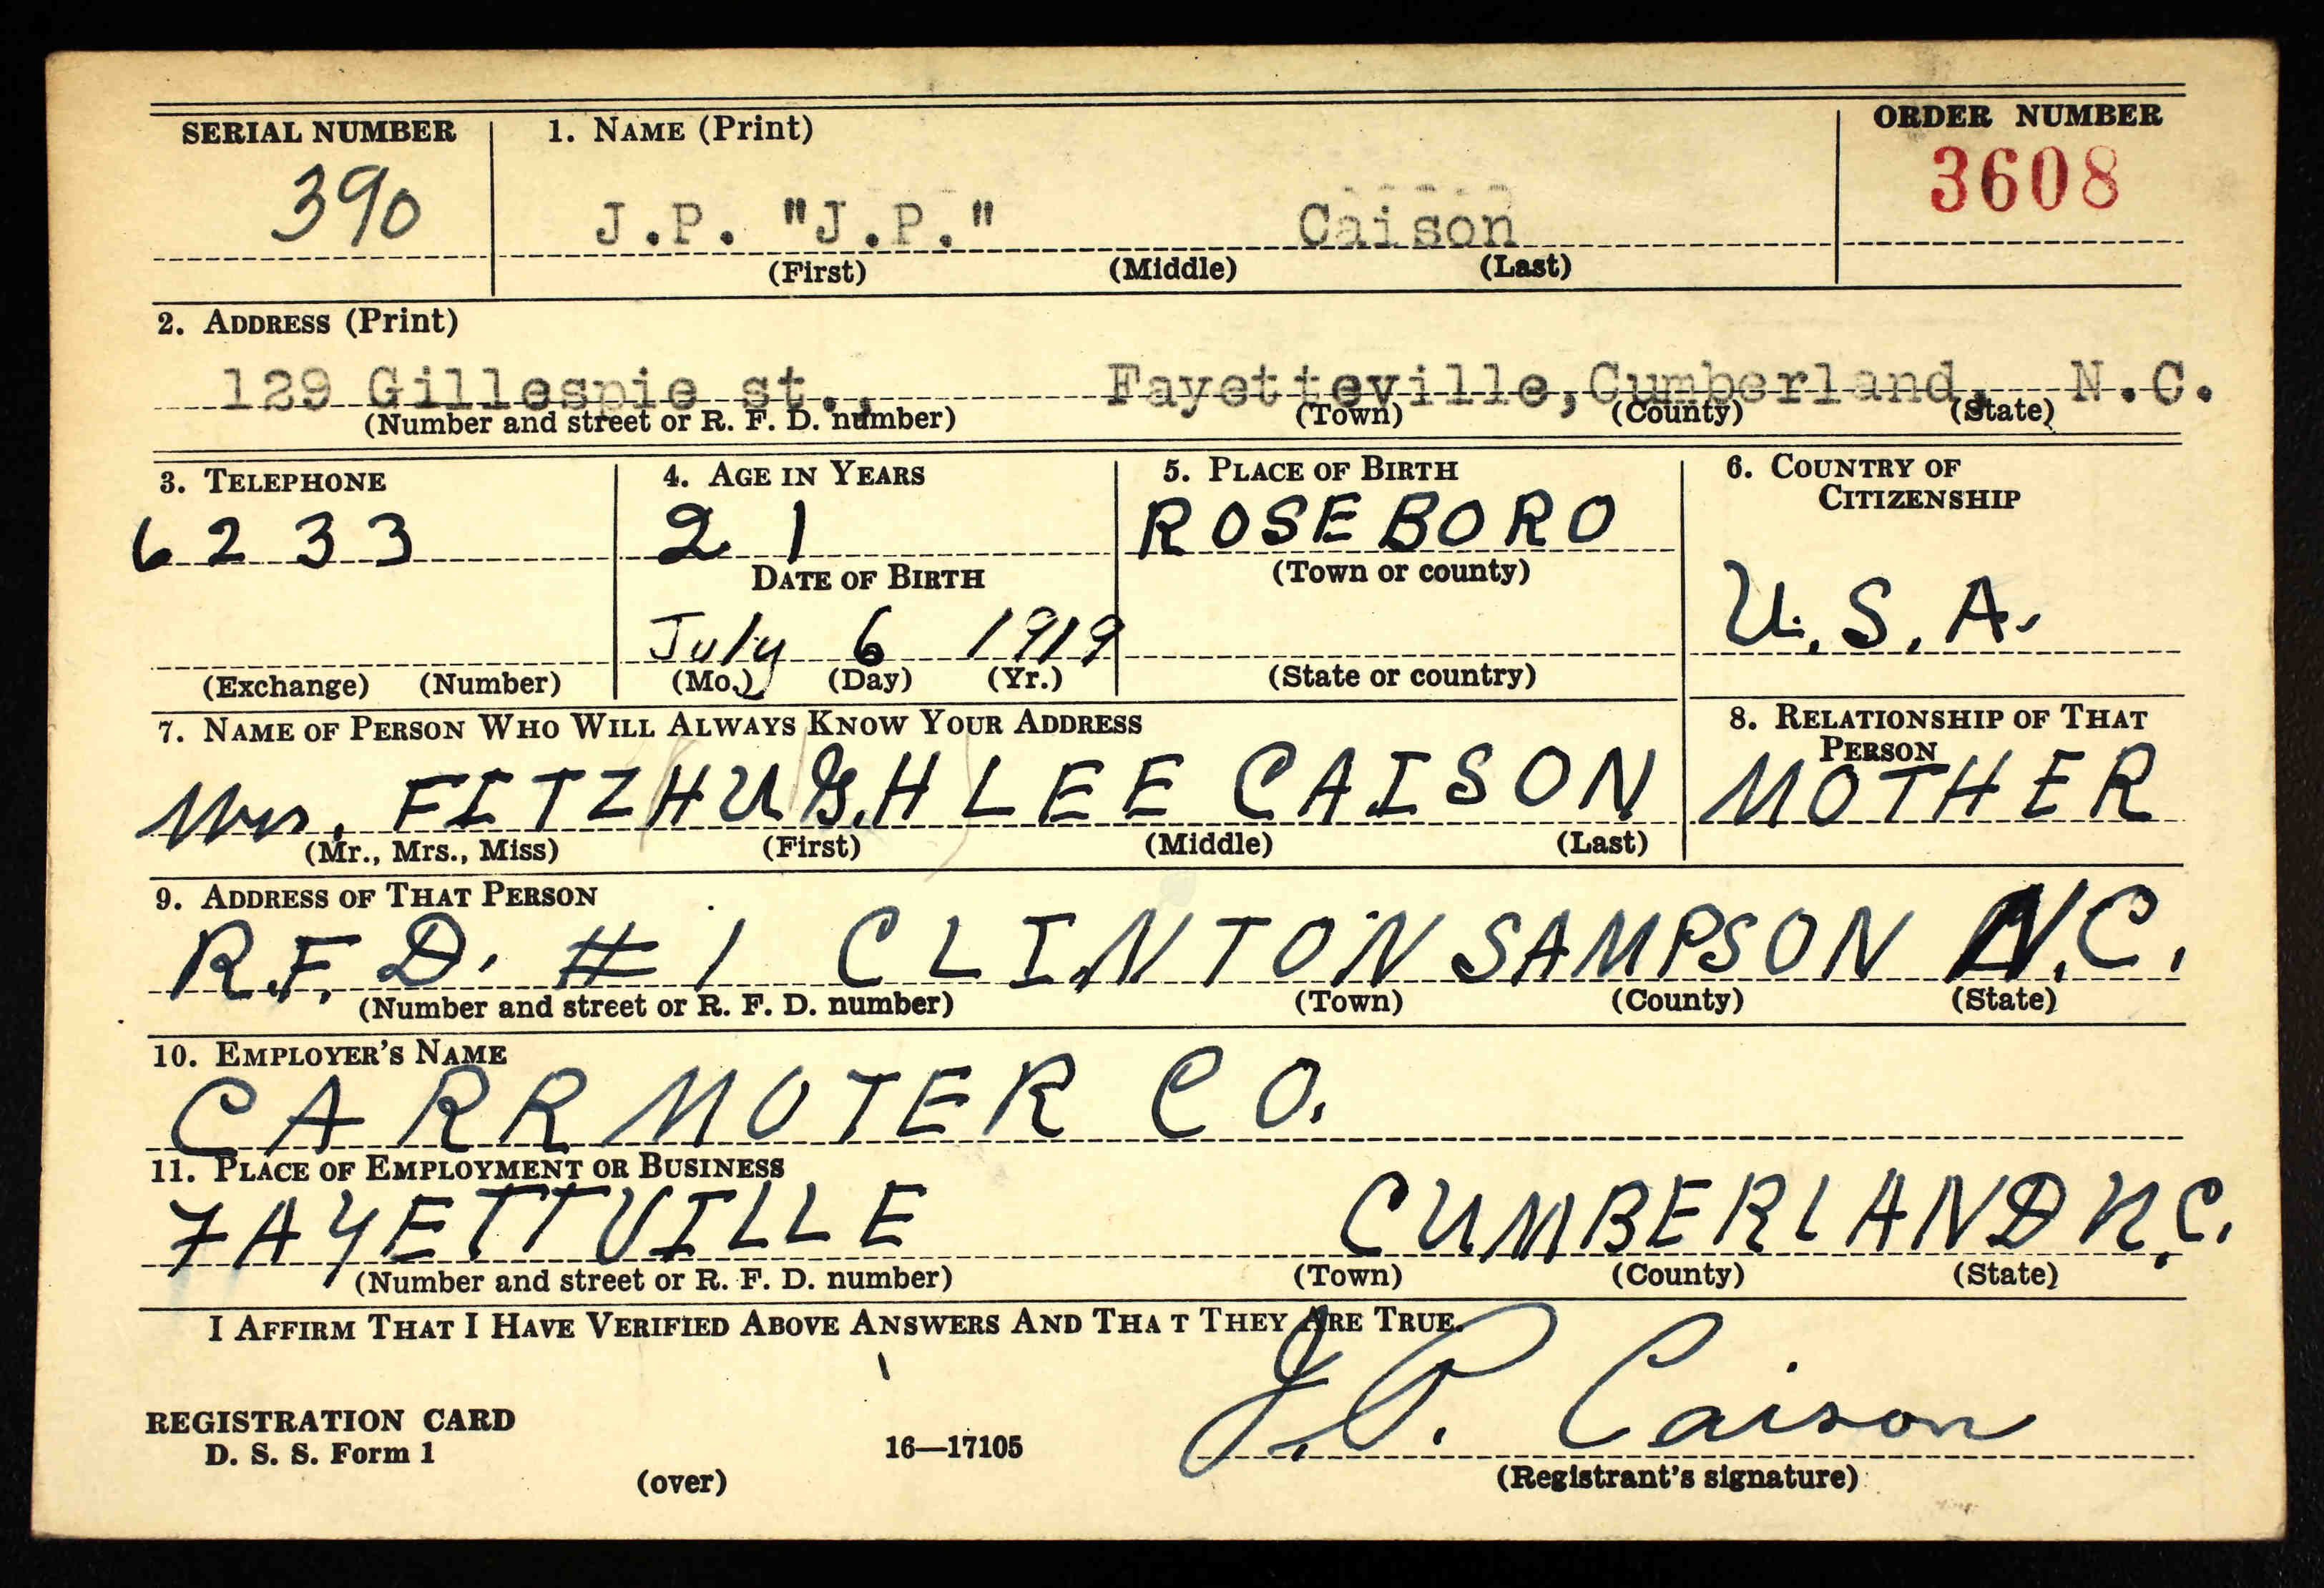 SERIAL NUMBER 1. NAME (Print) ORDER NUMBER
390 J.P. "J.P." Caison 3608
(First) (Middle) (Last)
2. ADDRESS (Print)
129 Gillespie st., Fayetteville, Cumberland, N.C.
(Number and street or R. F. D. number) (Town) (County) (State)
3. TELEPHONE 4. AGE IN YEARS 5. PLACE OF BIRTH 6. COUNTRY OF CITIZENSHIP
6233 21 ROSEBORO
DATE OF BIRTH (Town or county)
July 6 1919 U.S.A.
(Exchange) (Number) (Mo.) (Day) (Yr.) (State or country)
7. NAME OF PERSON WHO WILL ALWAYS KNOW YOUR ADDRESS 8. RELATIONSHIP OF THAT PERSON
Mrs. FITZHUGH LEE CAISON MOTHER
(Mr., Mrs., Miss) (First) (Middle) (Last)
9. ADDRESS OF THAT PERSON
R.F.D. # 1 CLINTON SAMPSON N.C.
(Number and street or R. F. D. number) (Town) (County) (State)
10. EMPLOYER'S NAME
CARR MOTER CO.
11. PLACE OF EMPLOYMENT OR BUSINESS
FAYETTVILLE CUMBERLAND N.C.
(Number and street or R. F. D. number) (Town) (County) (State)
I AFFIRM THAT I HAVE VERIFIED ABOVE ANSWERS AND THAT THEY ARE TRUE.
J.P. Caison
REGISTRATION CARD
D. S. S. Form 1 16—17105
(over) (Registrant's signature)